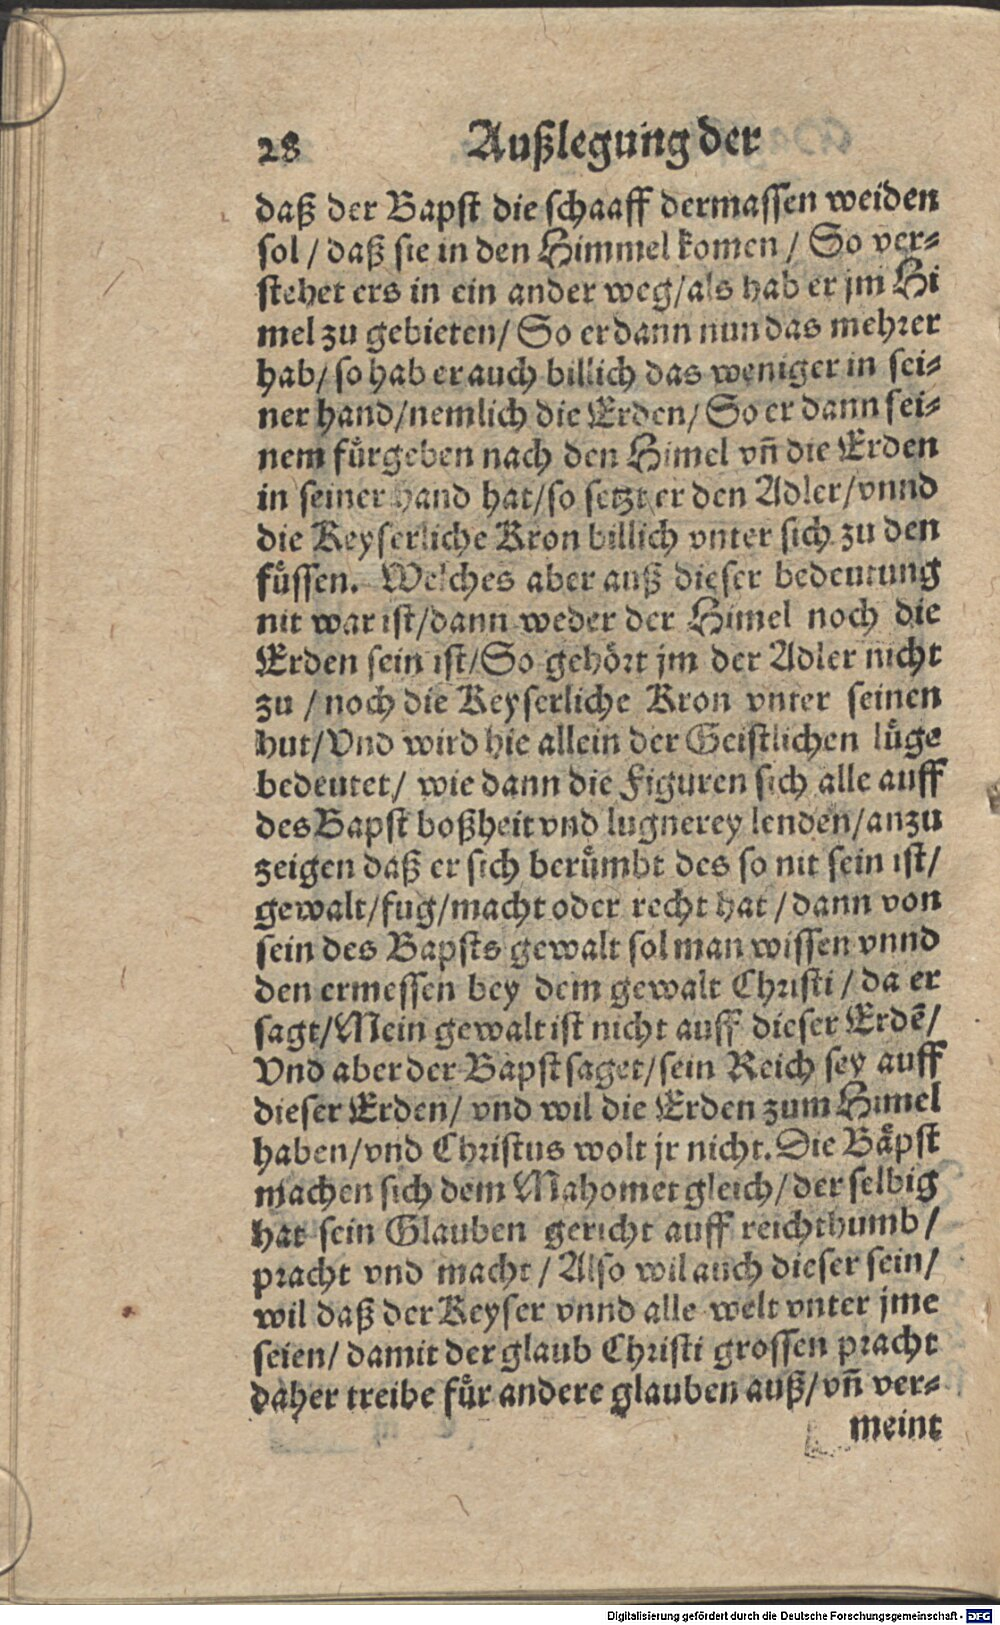 28 Außlegung der
daß der Bapst die schaaff dermassen weiden
sol / daß sie in den Himmel komen / So ver⸗
stehet ers in ein ander weg/als hab er jm Hi
mel zu gebieten/ So er dann nun das mehrer
hab/ so hab er auch billich das weniger in sei⸗
ner hand/nemlich die Erden/ So er dann sei⸗
nem fuͤrgeben nach den Himel vñ die Erden
in seiner hand hat/so setzt er den Adler/vnnd
die Keyserliche Kron billich vnter sich zu den
fuͤssen. Welches aber auß dieser bedeutung
nit war ist/dann weder der Himel noch die
Erden sein ist/So gehoͤrt jm der Adler nicht
zu / noch die Keyserliche Kron vnter seinen
hut/Vnd wird hie allein der Geistlichen luͤge
bedeutet/ wie dann die Figuren sich alle auff
des Bapst boßheit vnd lugnerey lenden/anzu
zeigen daß er sich beruͤmbt des so nit sein ist/
gewalt/fug/macht oder recht hat / dann von
sein des Bapsts gewalt sol man wissen vnnd
den ermessen bey dem gewalt Christi / da er
sagt/Mein gewalt ist nicht auff dieser Erdē/
Vnd aber der Bapst saget/sein Reich sey auff
dieser Erden/ vnd wil die Erden zum Himel
haben/vnd Christus wolt jr nicht. Die Baͤpst
machen sich dem Mahomet gleich/ der selbig
hat sein Glauben gericht auff reichthumb /
pracht vnd macht / Also wil auch dieser sein/
wil daß der Keyser vnnd alle welt vnter jme
seien/ damit der glaub Christi grossen pracht
daher treibe fuͤr andere glauben auß/vñ ver⸗
meint
Digitalisierung gefördert durch die Deutsche Forschungsgemeinschaft - DFG